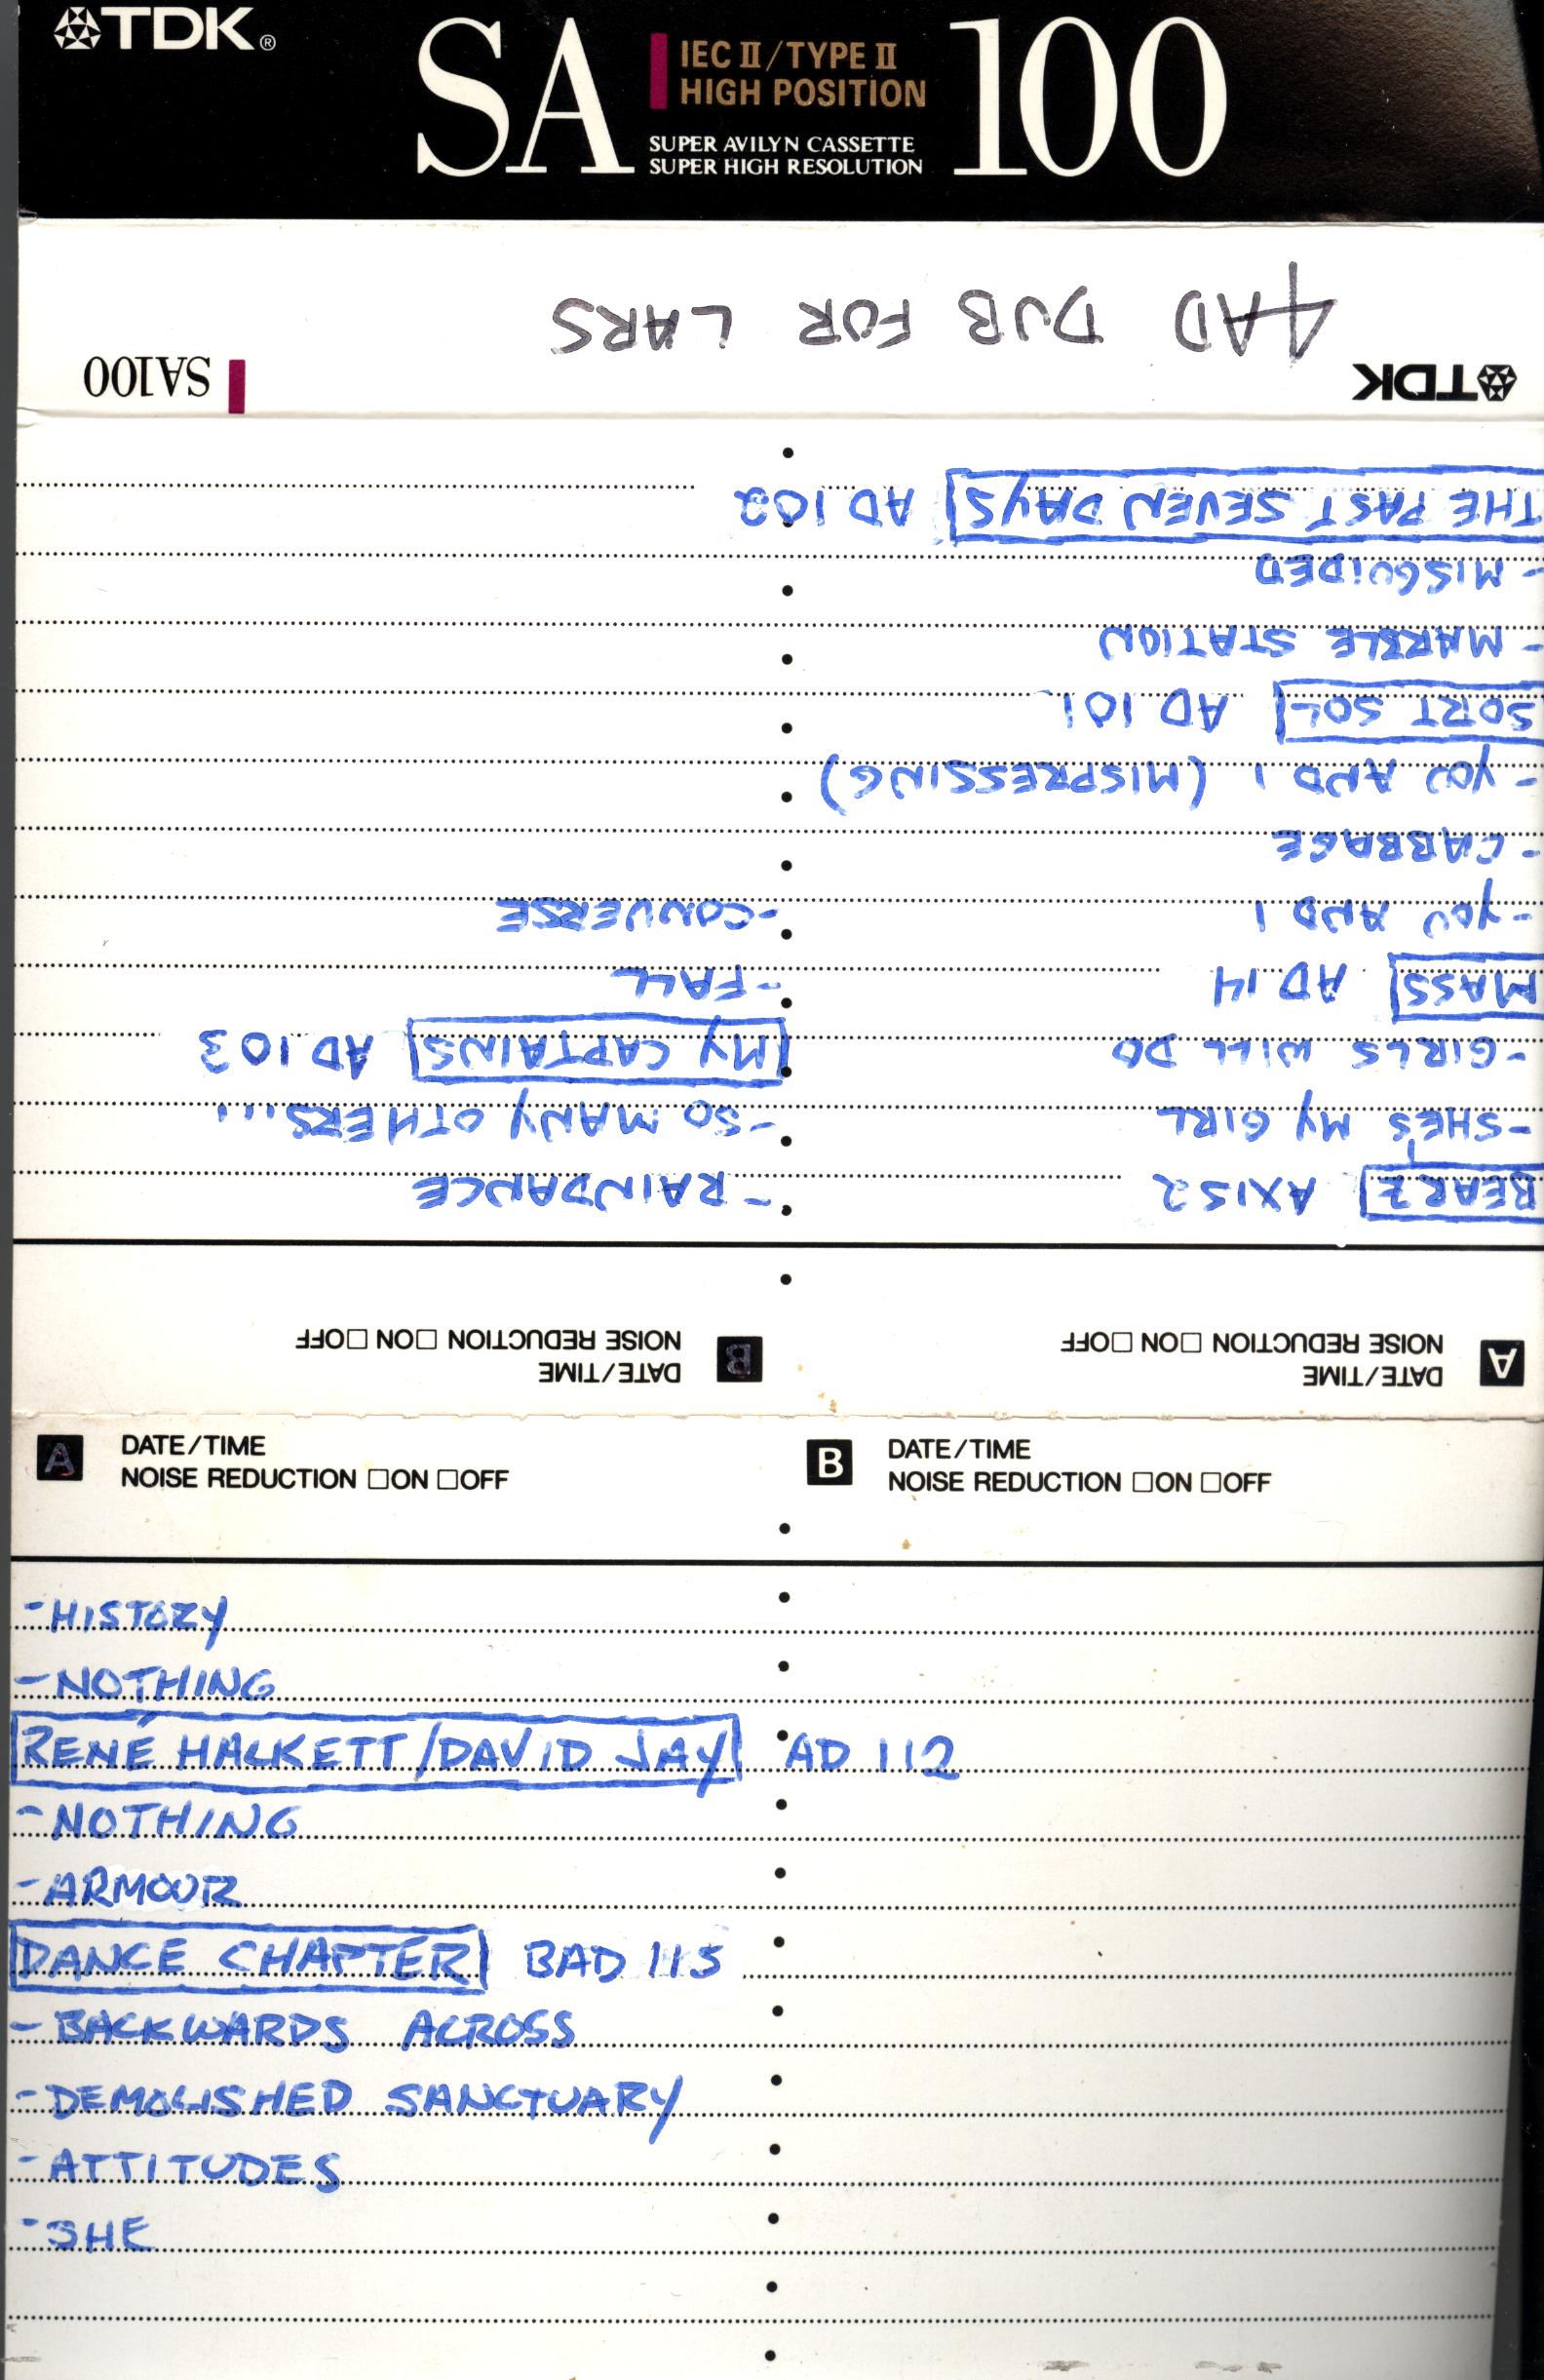 TDK®
SA
IEC II/TYPE II
HIGH POSITION
SUPER AVILYN CASSETTE
SUPER HIGH RESOLUTION
100
4AD DUB FOR LARS
TDK
SA100
A
DATE/TIME
NOISE REDUCTION □ON □OFF
BEARZ AXIS 2
-SHE'S MY GIRL
-GIRLS WILL DO
MASS AD 14
-YOU AND I
-CABBAGE
-YOU AND I (MISPRESSING)
SORT SOL AD 101
-MARBLE STATION
-MISGUIDED
THE PAST SEVEN DAYS AD 102
B
DATE/TIME
NOISE REDUCTION □ON □OFF
-RAINDANCE
-SO MANY OTHERS...
MY CAPTAINS AD 103
-FALL
-CONVERSE
A
DATE/TIME
NOISE REDUCTION □ON □OFF
B
DATE/TIME
NOISE REDUCTION □ON □OFF
-HISTORY
-NOTHING
RENÉ HALKETT/DAVID JAY AD 112
-NOTHING
-ARMOUR
DANCE CHAPTER BAD 115
-BACKWARDS ACROSS
-DEMOLISHED SANCTUARY
-ATTITUDES
-SHE